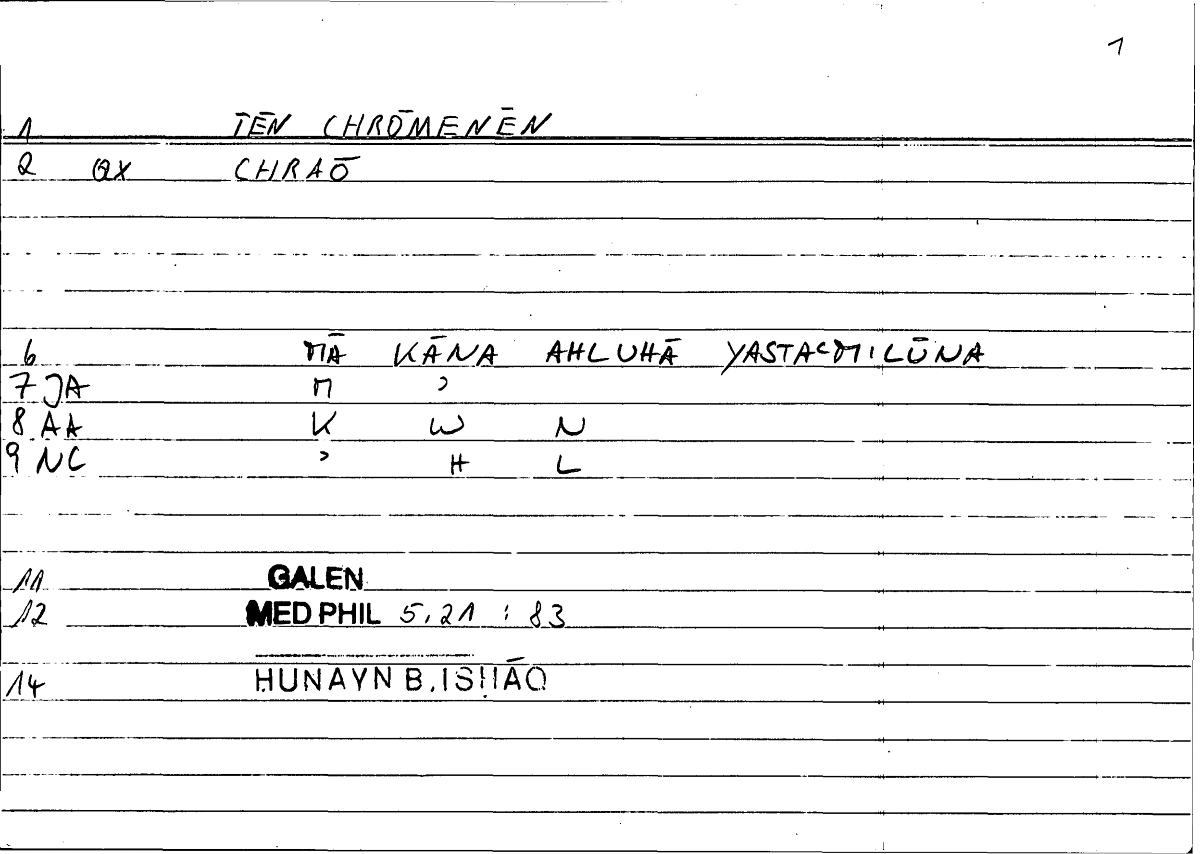 1
1 TĒN CHRŌMENĒN
2 QX CHRAŌ
6 MĀ KĀNA AHLUHĀ YASTAʿMILŪNA
7 JA M ʾ
8 AA K W N
9 NC ʾ H L
11 GALEN
12 MED PHIL 5,21 : 83
14 ḤUNAYN B. ISḤĀQ